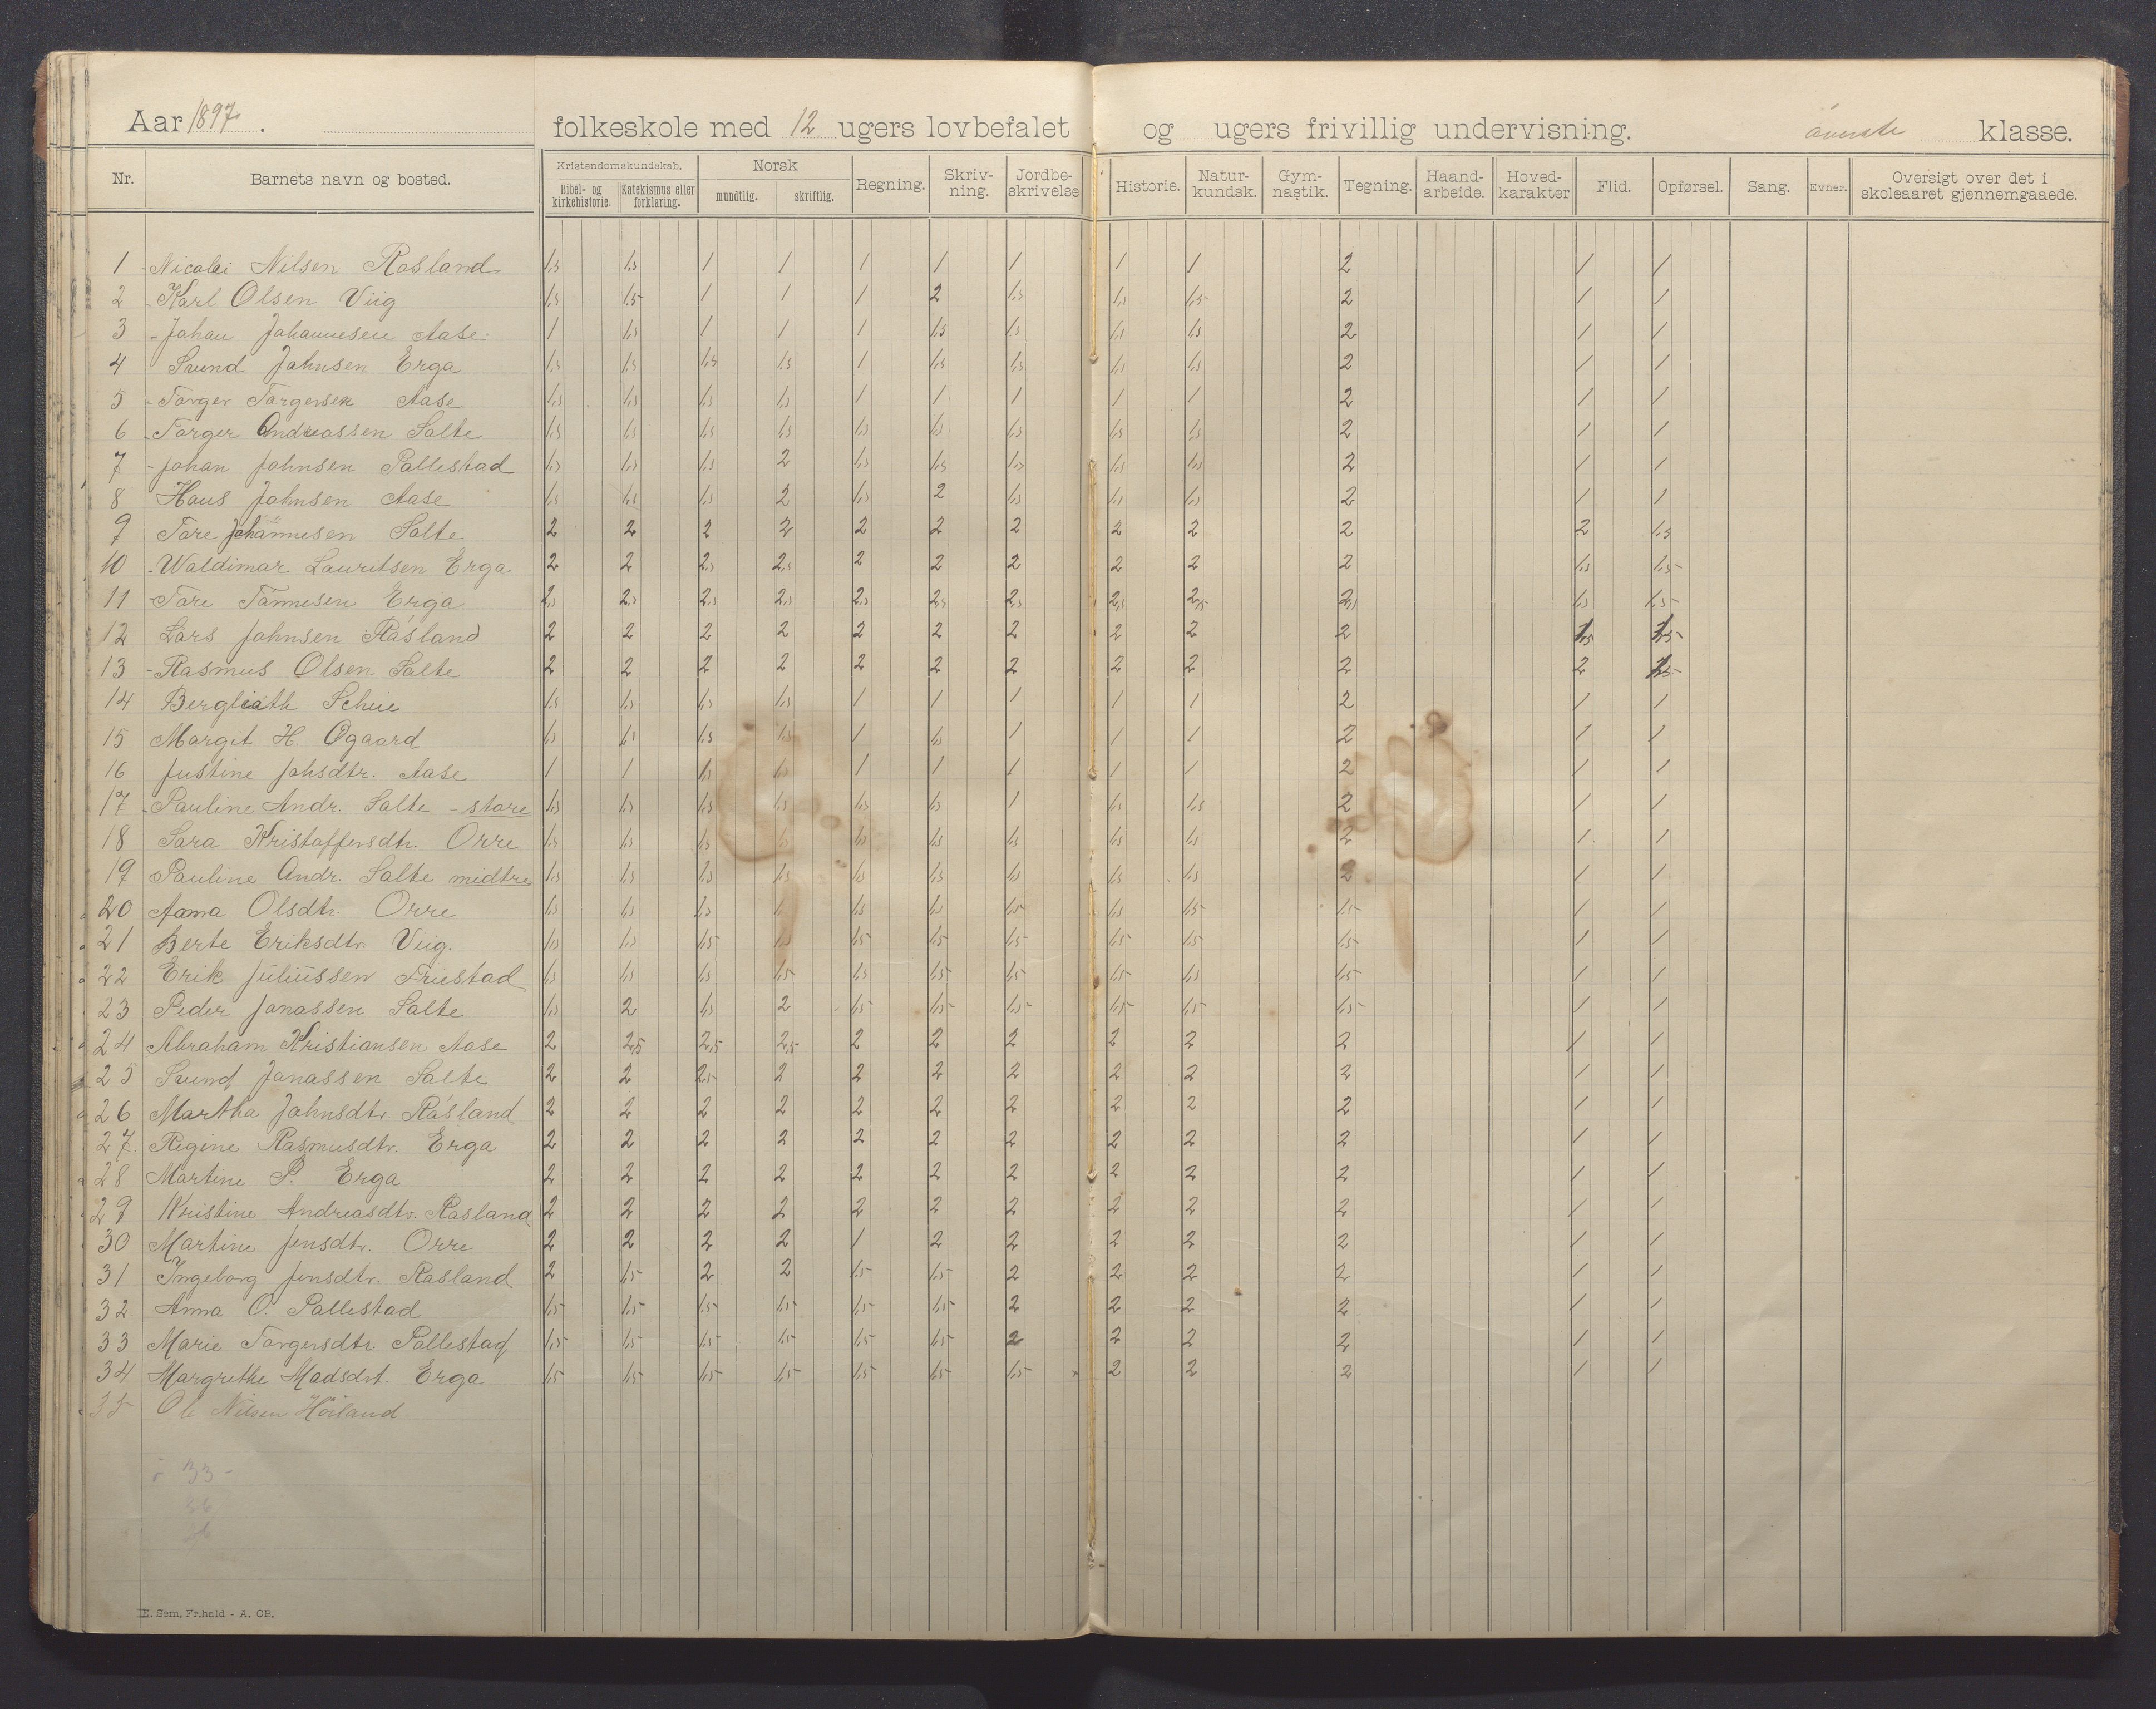 Aar 1897. folkeskole med 12 ugers lovbefalet og ugers frivillig undervisning. øverste klasse.
Nr. Barnets navn og bosted. Kristendomskundskab. Bibel- og kirkehistorie. Katekismus eller forklaring. Norsk mundtlig. skriftlig. Regning. Skriv-ning. Jordbe-skrivelse Historie. Natur-kundsk. Gym-nastik. Tegning. Haand-arbeide. Hoved-karakter Flid. Opførsel. Sang. Evner. Oversigt over det i skoleaaret gjennemgaaede.
1 Nicolai Nilsen Rosland 1,5 1,5 1 1 1 1 1 1 1 2 1 1
2 Karl Olsen Viig 1,5 1,5 1 1 1 2 1,5 1,5 1,5 2 1 1
3 Johan Johannesen Aase 1 1,5 1 1 1 1,5 1,5 1,5 1,5 2 1 1
4 Svend Johnsen Erga 1,5 1,5 1,5 1,5 1 1,5 1,5 1,5 1,5 2 1 1
5 Torger Torgersen Aase 1,5 1,5 1,5 1,5 1 1 1 1 1 2 1 1
6 Torger Andreassen Salte 1,5 1,5 1,5 1,5 1,5 1,5 1,5 1,5 1,5 2 1 1
7 Johan Johnsen Pallestad 1,5 1,5 1,5 2 1,5 1,5 1,5 1,5 1,5 2 1 1
8 Hans Johnsen Aase 1,5 1,5 1,5 2 1,5 2 1,5 1,5 1,5 2 1 1
9 Tore Johannesen Salte 2 2 2 2 2 2 2 2 2 2 2 1,5
10 Waldimar Lauritsen Erga 2 2 2,5 2,5 2 2 2 2 2 2 1,5 1,5
11 Tore Tønnesen Erga 2,5 2,5 2,5 2,5 2,5 2,5 2,5 2,5 2,5 2,5 1,5 1,5
12 Lars Johnsen Råsland 2 2 2 2 2 2 2 2 2 2 1,5 1,5
13 Rasmus Olsen Salte 2 2 2 2 2 2 2 2 2 2 2 1,5
14 Bergliøth Scheie 1,5 1,5 1,5 1,5 1 1 1 1 1 2 1 1
15 Margit H. Ogaard 1,5 1,5 1,5 1,5 1 1,5 1 1 1 2 1 1
16 Justine Johsdtr. Aase 1 1 1,5 1,5 1 1 1 1 1 2 1 1
17 Pauline Andr. Salte - store 1,5 1,5 1,5 1,5 1,5 1,5 1 1,5 1,5 2 1 1
18 Sara Kristoffersdtr. Orre 1,5 1,5 1,5 1,5 1,5 1,5 1,5 1,5 1,5 2 1 1
19 Pauline Andr. Salte medtre 1,5 1,5 1,5 1,5 1,5 1,5 1,5 1,5 1,5 2 1 1
20 Anna Olsdtr. Orre 1,5 1,5 1,5 1,5 1,5 1,5 1,5 1,5 1,5 1 1
21 Berte Eriksdtr. Viig. 1,5 1,5 1,5 1,5 1,5 1,5 1,5 1,5 1,5 1,5 1 1
22 Erik Juliussen Friestad 1,5 1,5 1,5 1,5 1,5 1,5 1,5 1,5 1,5 1,5 1 1
23 Peder Jonassen Salte 1,5 2 1,5 2 1,5 1,5 1,5 1,5 1,5 1,5 1 1
24 Abraham Kristiansen Aase 2 2,5 2,5 2,5 2 2 2 2 2 2 1 1
25 Svend Jonassen Salte 2 2 2,5 2 2 2 2 2 2 2 1 1
26 Martha Johnsdtr. Råsland 2 2 2 2 2 2 2 2 2 2 1 1
27. Regine Rasmusdtr. Erga 2 2 2 2 2 2 2 2 2 2 1 1
28 Martine P. Erga 2 2 2 2 2 2 2 2 2 2 1 1
29 Kristine Andreasdtr. Rasland 2 2 2 2 2 2 2 2 2 2 1 1
30 Martine Jensdtr. Orre 2 2 2 2 1 2 2 2 2 2 1 1
31 Ingeborg Jensdtr. Rasland 2 1,5 2 2 1,5 1,5 2 2 2 2 1 1
32. Anna O. Pallestad 1,5 1,5 1,5 1,5 1,5 1,5 2 2 2 2 1 1
33 Marie Torgersdtr. Pallestad 1,5 1,5 1,5 1,5 1,5 1,5 2 2 2 2 1 1
34 Margrethe Madsdrt. Erga 1,5 1,5 1,5 1,5 1,5 1,5 1,5 2 2 2 1 1
35 Ole Nilsen Höiland
33 -
E. Sem, Fr.hald - A. CB.